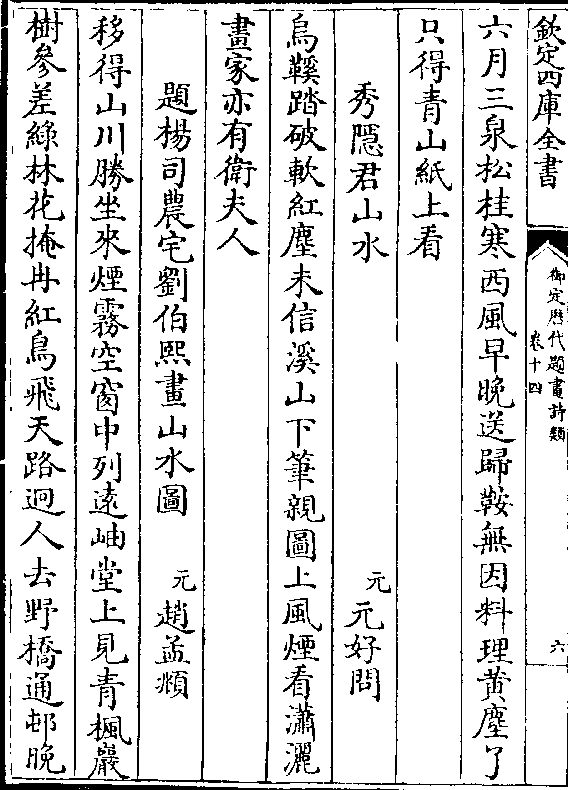 欽定四庫全書
御定歷代題畫詩類
卷十四
六
六月三泉松桂寒西風早晚送歸鞍無因料理黃塵了
只得青山紙上看
秀隠君山水
元元好問
烏鞵踏破軟紅塵未信溪山下筆親圖上風煙看瀟灑
畫家亦有衛夫人
題楊司農宅劉伯熙畫山水圖
元趙孟頫
移得山川勝坐來煙霧空窗中列遠岫堂上見青楓巖
樹參差綠林花掩冉紅鳥飛天路迥人去野橋通邨晚